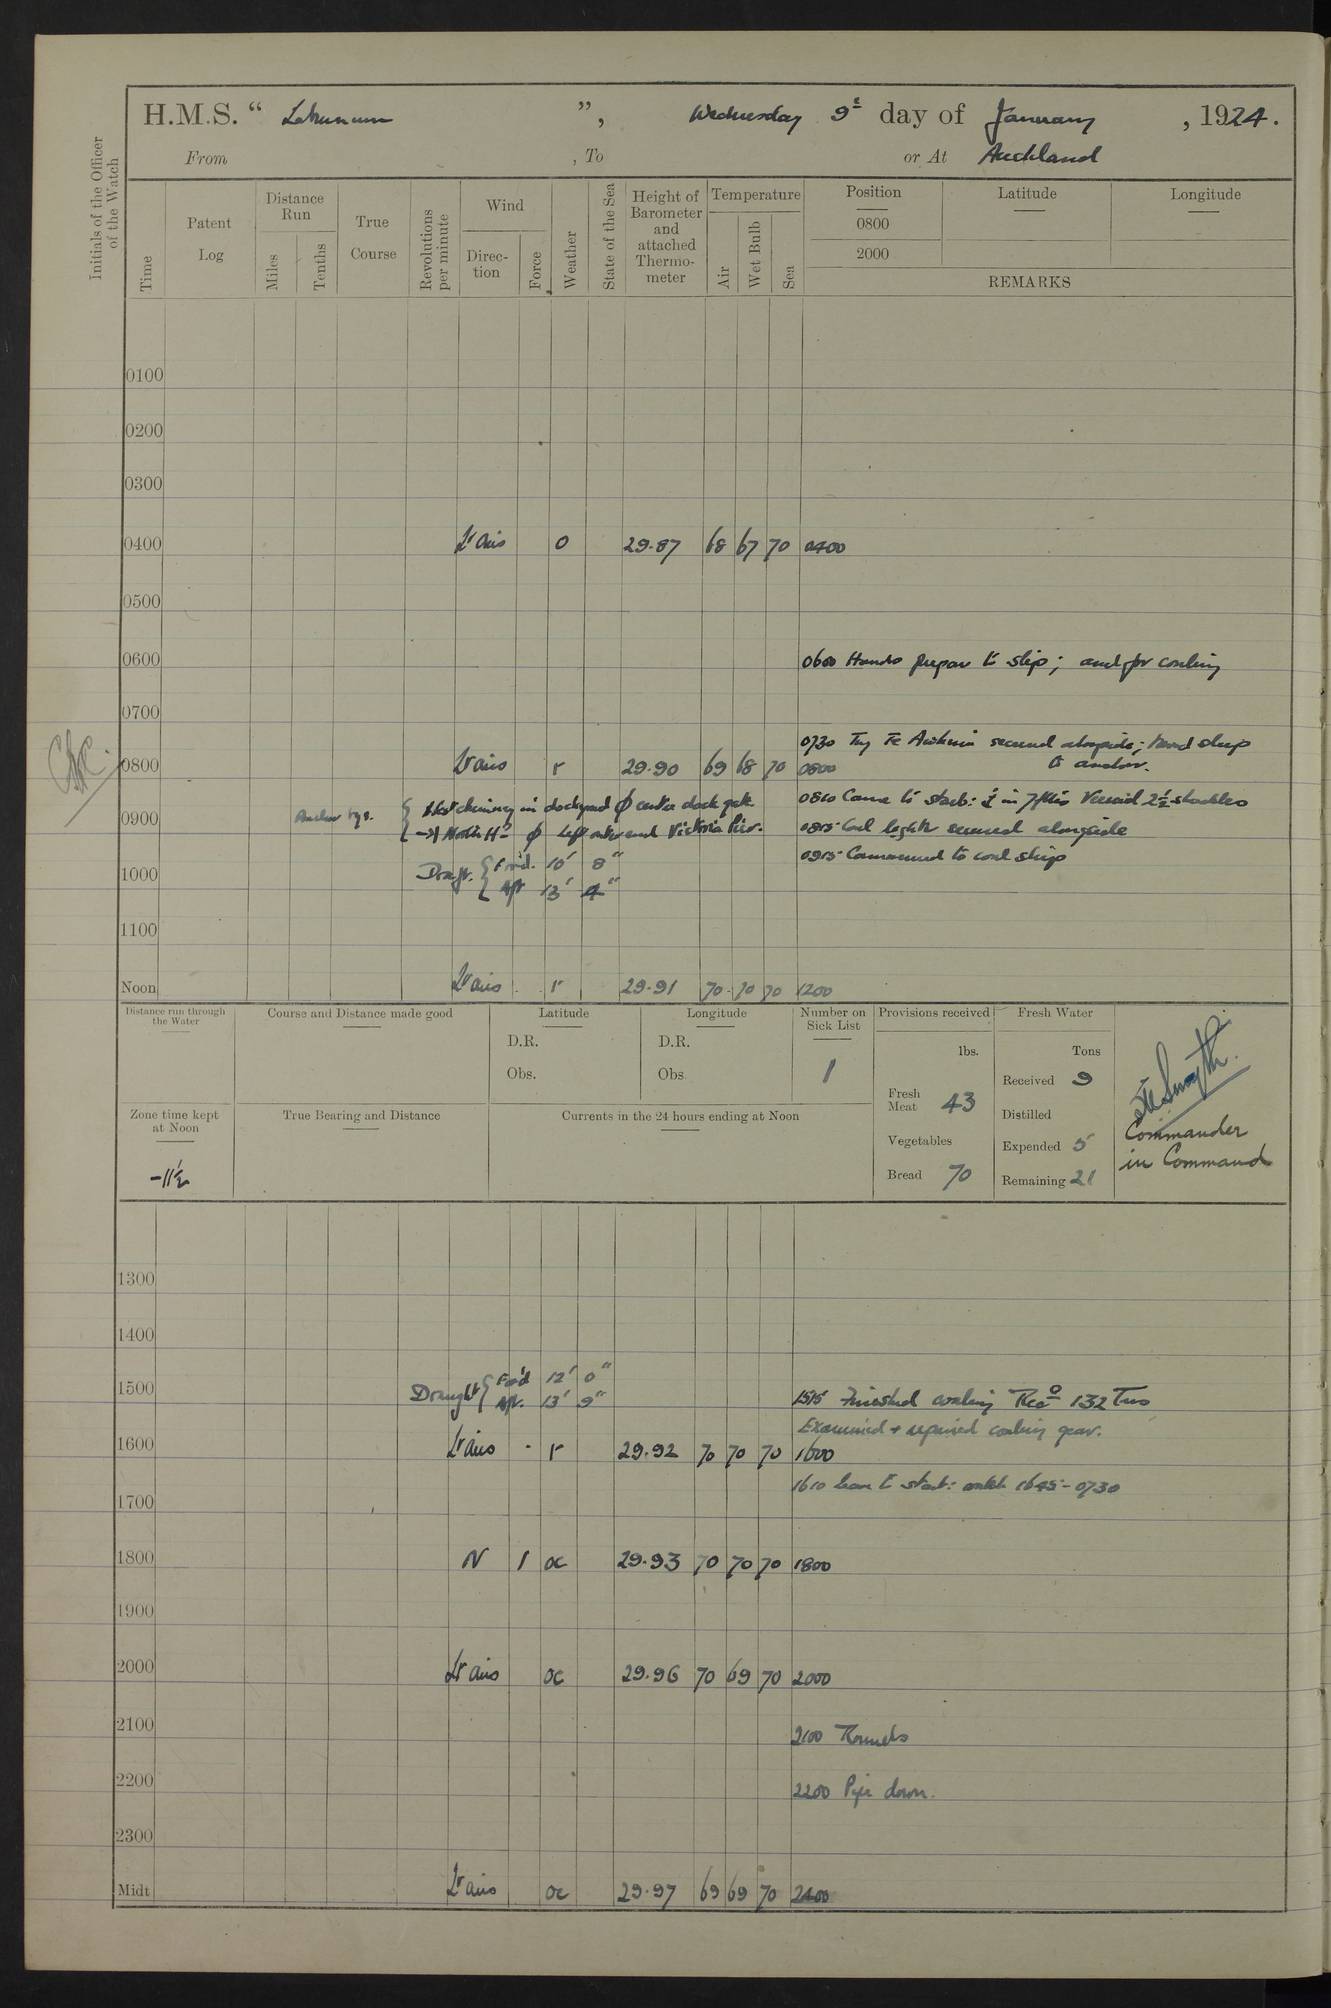 H.M.S. “ Laburnum ”, Wednesday 9th day of January , 1924.
From , To or At Auckland
Initials of the Officer of the Watch
Time
Patent Log
Distance Run
Miles
Tenths
True Course
Revolutions per minute
Wind
Direction
Force
Weather
State of the Sea
Height of Barometer and attached Thermometer
Temperature
Air
Wet Bulb
Sea
Position Latitude Longitude
0800
2000
REMARKS
0100
0200
0300
0400 Lt airs o 29.87 68 67 70 0400
0500
0600 0600 Hands prepare to slip; and for coaling
0700
0730 Tug Te Awhina secured alongside; Moved ship
0800 Lt airs r 29.90 69 68 70 0800 to anchor.
0810 Came to starb: in 7 fms Veered 2½ shackles
Anchor bgs. chimney in dockyard ϕ center dock gate
0900 North Hd ϕ left outer end Victoria Pier. 0815 Coal lighter secured alongside
0915 Commenced to coal ship
Draft. For'd. 10' 8"
1000 Aft 13' 4"
1100
Noon Lt airs r 29.91 70 70 70 1200
Distance run through the Water
Course and Distance made good
Latitude
D.R.
Obs.
Longitude
D.R.
Obs
Number on Sick List
1
Provisions received
lbs.
Fresh Meat 43
Vegetables
Bread 70
Fresh Water
Tons
Received 9
Distilled
Expended 5
Remaining 21
Commander
in Command
Zone time kept at Noon
-11½
True Bearing and Distance
Currents in the 24 hours ending at Noon
1300
1400
Draught For'd 12' 0"
1500 Aft. 13' 9" 1515 Finished coaling Recd 132 Tons
Examined + repaired coaling gear.
1600 Lt airs - r 29.92 70 70 70 1600
1610 Leave to starb: watch 1645-0730
1700
1800 N 1 oc 29.93 70 70 70 1800
1900
2000 Lt airs oc 29.96 70 69 70 2000
2100 2100 Rounds
2200 2200 Pipe down.
2300
Midt Lt airs oc 29.97 69 69 70 2400